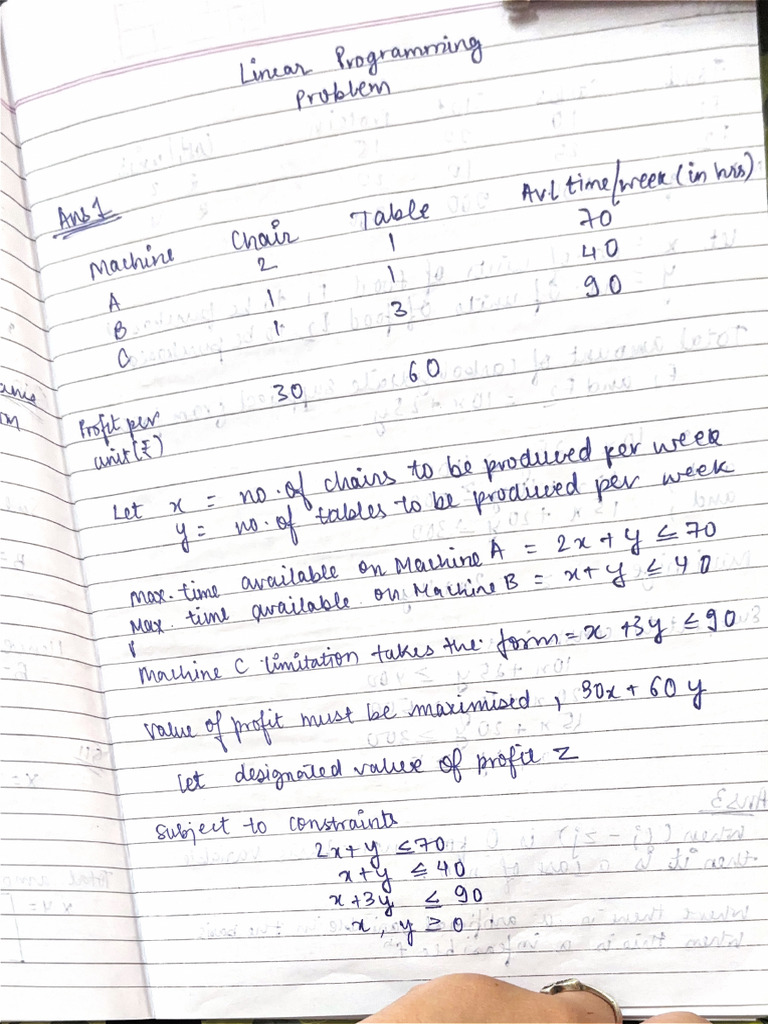 Linear Programming
Problem
Ans 1
Machine Chair Table Avl time/week (in hrs)
A 2 1 70
B 1 1 40
C 1 3 90
Profit per unit (₹) 30 60
Let x = no. of chairs to be produced per week
y = no. of tables to be produced per week
max. time available on Machine A = 2x + y ≤ 70
Max. time available on Machine B = x + y ≤ 40
Machine C limitation takes the form = x + 3y ≤ 90
value of profit must be maximised, 30x + 60y
let designated value of profit Z
Subject to constraints
2x + y ≤ 70
x + y ≤ 40
x + 3y ≤ 90
x, y ≥ 0